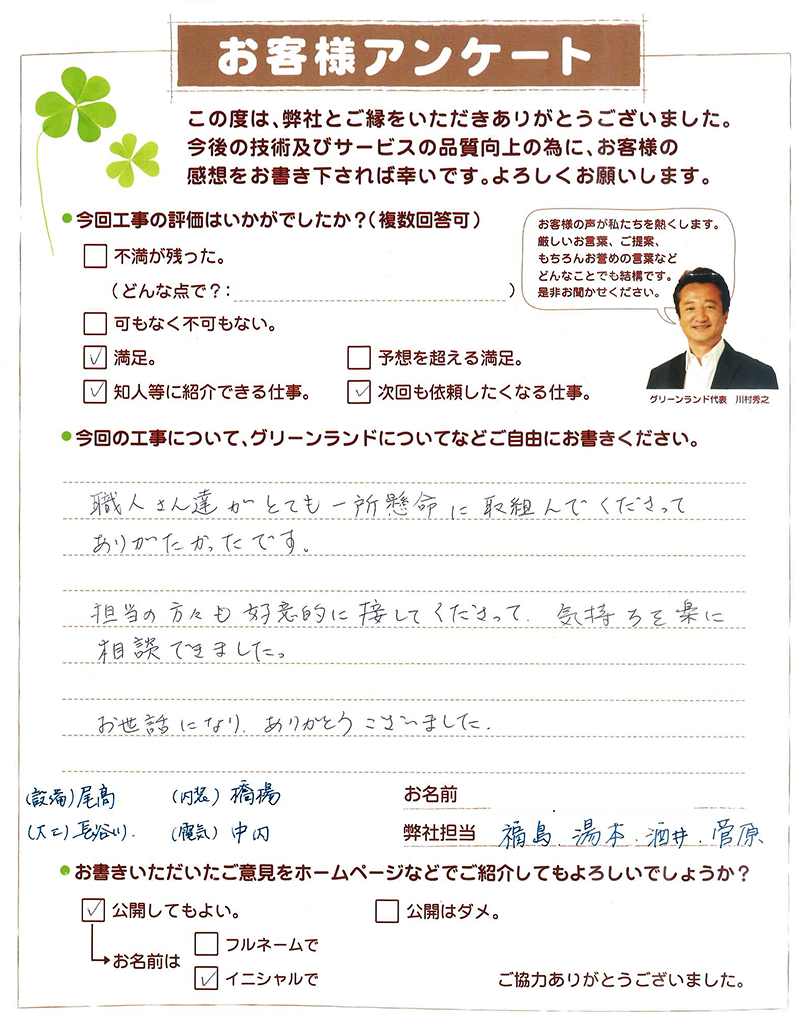 お客様アンケート
この度は、弊社とご縁をいただきありがとうございました。
今後の技術及びサービスの品質向上の為に、お客様の
感想をお書き下されば幸いです。よろしくお願いします。
●今回工事の評価はいかがでしたか?(複数回答可)
お客様の声が私たちを熱くします。
厳しいお言葉、ご提案、
もちろんお誉めの言葉など
どんなことでも結構です。
是非お聞かせください。
グリーンランド代表 川村秀之
□ 不満が残った。
(どんな点で?: )
□ 可もなく不可もない。
☑ 満足。 □ 予想を超える満足。
☑ 知人等に紹介できる仕事。 ☑ 次回も依頼したくなる仕事。
●今回の工事について、グリーンランドについてなどご自由にお書きください。
職人さん達がとても一所懸命に取組んでくださって
ありがたかったです。
担当の方々も好意的に接してくださって、気持ちを楽に
相談できました。
お世話になり、ありがとうございました。
(設備)尾高 (内装)橋場 お名前
(大工)長谷川. (電気)中内 弊社担当 福島.湯本.酒井.菅原
●お書きいただいたご意見をホームページなどでご紹介してもよろしいでしょうか?
☑ 公開してもよい。 □ 公開はダメ。
お名前は □ フルネームで
☑ イニシャルで
ご協力ありがとうございました。